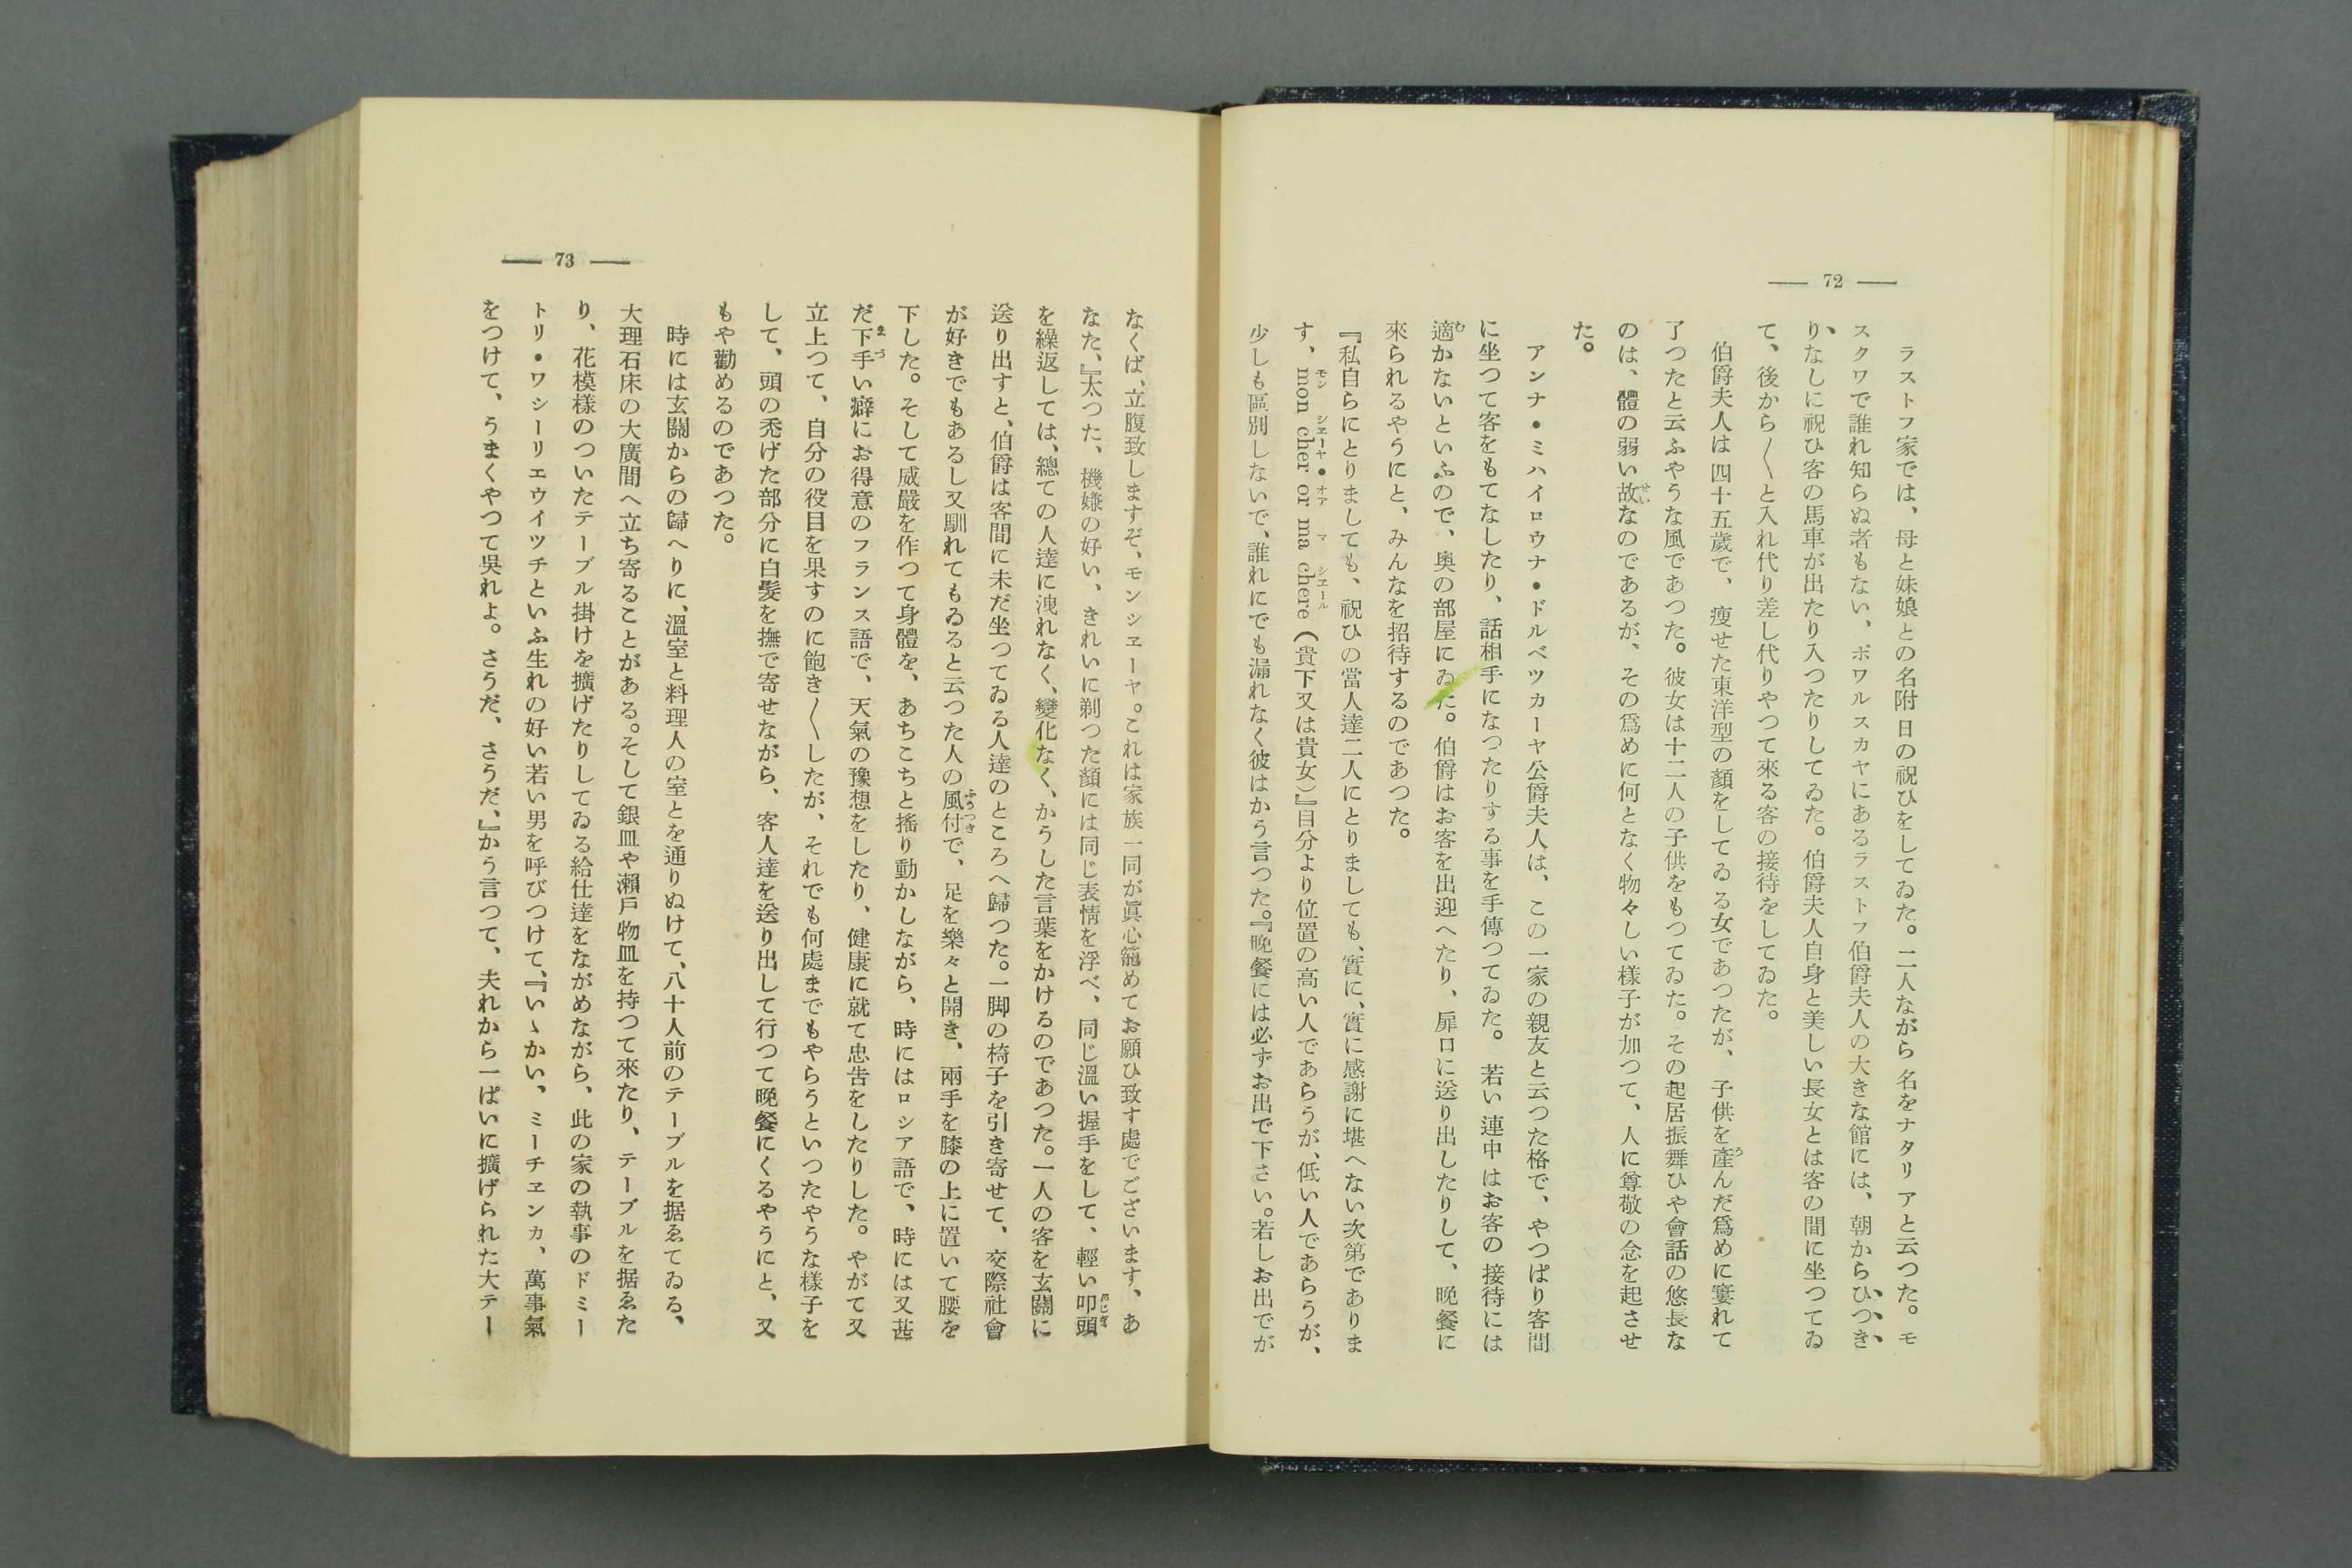 72
ラストフ家では、母と妹娘との名附日の祝ひをしてゐた。二人ながら名をナタリアと云つた。モ
スクワで誰れ知らぬ者もない、ポワルスカヤにあるラストフ伯爵夫人の大きな館には、朝からひつき
りなしに祝ひ客の馬車が出たり入つたりしてゐた。伯爵夫人自身と美しい長女とは客の間に坐つてゐ
て、後から〱と入れ代り差し代りやつて來る客の接待をしてゐた。
伯爵夫人は四十五歲で、瘦せた東洋型の顏をしてゐる女であつたが、子供を產んだ爲めに窶れて
了つたと云ふやうな風であつた。彼女は十二人の子供をもつてゐた。その起居振舞ひや會話の悠長な
のは、體の弱い故なのであるが、その爲めに何となく物々しい樣子が加つて、人に尊敬の念を起させ
た。
アンナ・ミハイロウナ・ドルベツカーヤ公爵夫人は、この一家の親友と云つた格で、やつぱり客間
に坐つて客をもてなしたり、話相手になつたりする事を手傳つてゐた。若い連中はお客の接待には
適かないといふので、奧の部屋にゐた。伯爵はお客を出迎へたり、扉口に送り出したりして、晩餐に
來られるやうにと、みんなを招待するのであつた。
『私自らにとりましても、祝ひの當人達二人にとりましても、實に、實に感謝に堪へない次第でありま
す、mon cher or ma chere（貴下又は貴女）』目分より位置の高い人であらうが、低い人であらうが、
少しも區別しないで、誰れにでも漏れなく彼はかう言つた。『晩餐には必ずお出で下さい。若しお出でが
73
なくば、立腹致しますぞ、モンシエーヤ。これは家族一同が眞心籠めてお願ひ致す處でございます、あ
なた、』太つた、機嫌の好い、きれいに剃つた顏には同じ表情を浮べ、同じ溫い握手をして、輕い叩頭
を繰返しては、總ての人達に洩れなく、變化なく、かうした言葉をかけるのであつた。一人の客を玄關に
送り出すと、伯爵は客間に未だ坐つてゐる人達のところへ歸つた。一脚の椅子を引き寄せて、交際社會
が好きでもあるし又馴れてもゐると云つた人の風付で、足を樂々と開き、兩手を膝の上に置いて腰を
下した。そして威嚴を作つて身體を、あちこちと搖り動かしながら、時にはロシア語で、時には又甚
だ下手い癖にお得意のフランス語で、天氣の豫想をしたり、健康に就て忠告をしたりした。やがて又
立上つて、自分の役目を果すのに飽き〱したが、それでも何處までもやらうといつたやうな樣子を
して、頭の禿げた部分に白髮を撫で寄せながら、客人達を送り出して行つて晩餐にくるやうにと、又
もや勸めるのであつた。
時には玄關からの歸へりに、溫室と料理人の室とを通りぬけて、八十人前のテーブルを据ゑてゐる、
大理石床の大廣間へ立ち寄ることがある。そして銀皿や瀨戶物皿を持つて來たり、テーブルを据ゑた
り、花模樣のついたテーブル掛けを擴げたりしてゐる給仕達をながめながら、此の家の執事のドミー
トリ・ワシーリエウイツチといふ生れの好い若い男を呼びつけて、『いゝかい、ミーチエンカ、萬事氣
をつけて、うまくやつて吳れよ。さうだ、さうだ、』かう言つて、夫れから一ぱいに擴げられた大テー